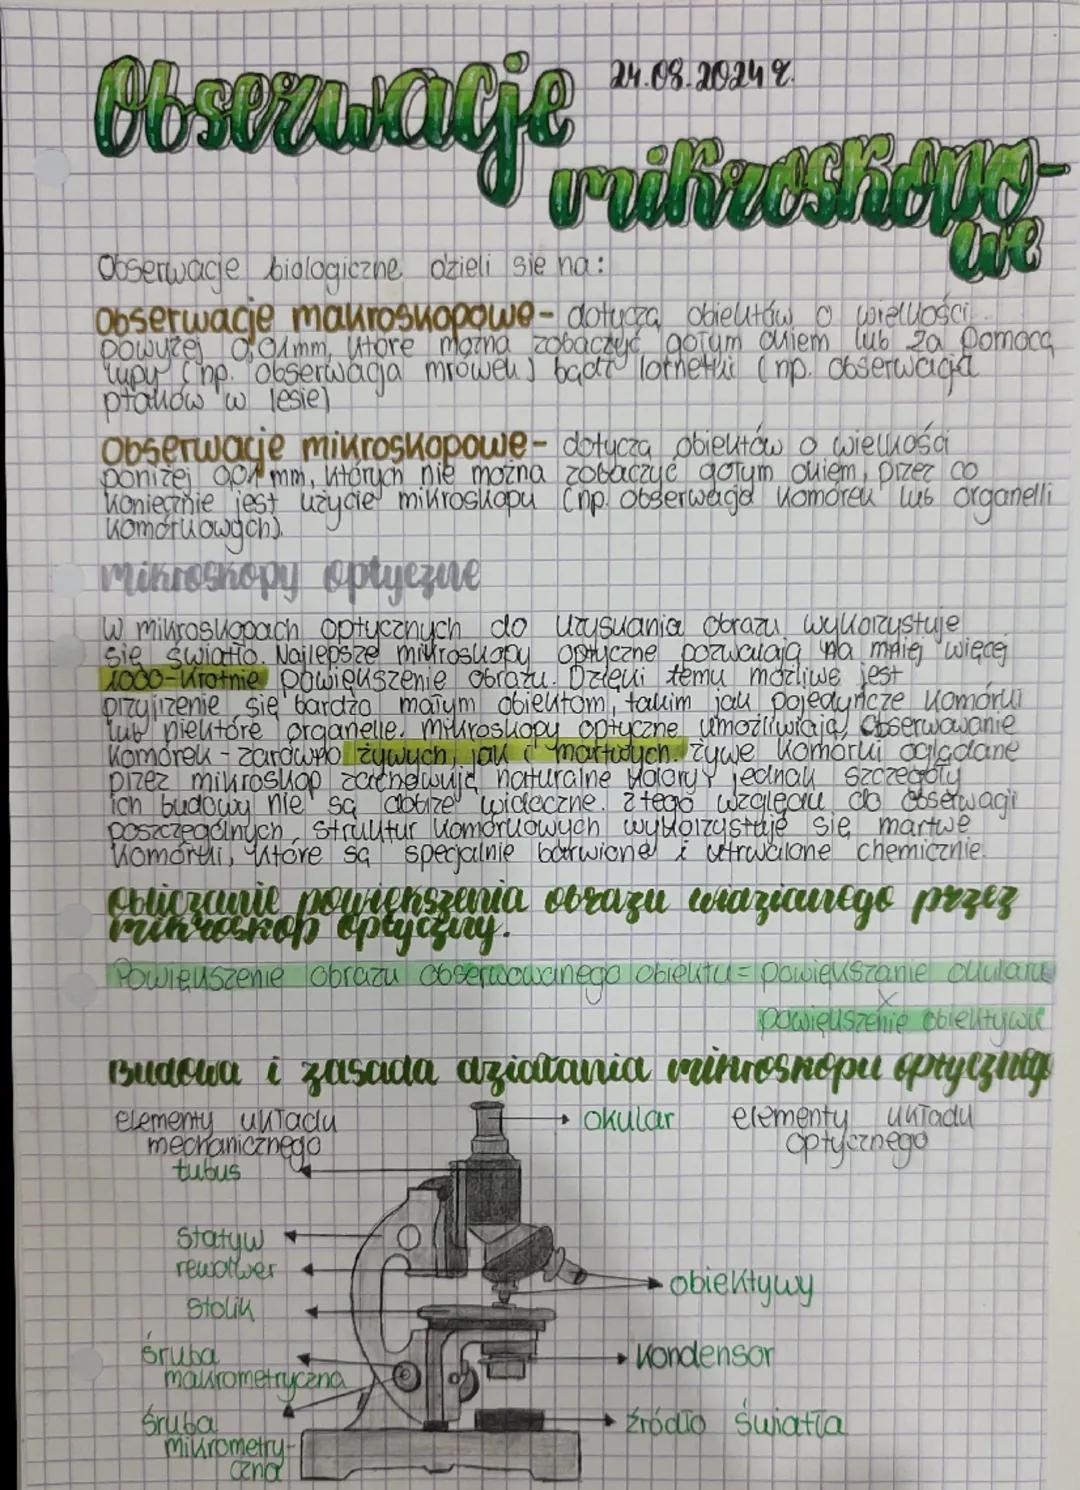 Obserwacje 24.08.2024 r.
mikroskopo-
we
Obserwacje biologiczne dzieli się na:
obserwacje makroskopowe- dotyczą obiektów o wielkości
powyżej 0,01mm, które można zobaczyć gołym okiem lub za pomocą
lupy (np. obserwacja mrówek) bądź lornetki (np. obserwacja
ptaków w lesie)
obserwacje mikroskopowe- dotyczą obiektów o wielkości
poniżej 0,01 mm, których nie można zobaczyć gołym okiem, przez co
koniecznie jest użycie mikroskopu (np. obserwacja komórek lub organelli
komórkowych).
mikroskopy optyczne
W mikroskopach optycznych do uzyskania obrazu wykorzystuje
się światło. Najlepsze mikroskopy optyczne pozwalają na mniej więcej
1000-krotnie powiększenie obrazu. Dzięki temu możliwe jest
przyjrzenie się bardzo małym obiektom, takim jak pojedyncze komórki
lub niektóre organelle. mikroskopy optyczne umożliwiają obserwowanie
komórek - zarówno żywych, jak i martwych. żywe komórki oglądane
przez mikroskop zachowują naturalne kolory, jednak szczegóły
ich budowy nie są dobrze widoczne. z tego względu do obserwacji
poszczególnych struktur komórkowych wykorzystuje się martwe
komórki, które są specjalnie barwione i utrwalone chemicznie.
obliczanie powiększenia obrazu widzianego przez
mikroskop optyczny.
Powiększenie obrazu obserwowanego obiektu = powiększanie okularu
x
powiększenie obiektywu
Budowa i zasada działania mikroskopu optycznego
elementy układu okular elementy układu
mechanicznego optycznego
tubus
statyw
rewolwer
obiektywy
stolik
śruba kondensor
makrometryczna
śruba źródło światła
mikrometry-
czna